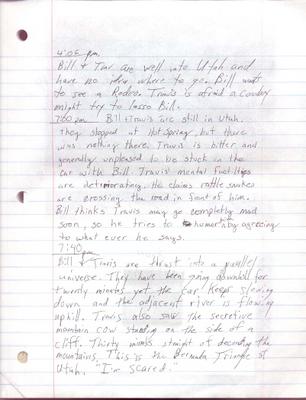 4:05 pm.
Bill & Trav are well into Utah and
have no idea where to go. Bill want
to see a Rodeo. Travis is afraid a cowboy
might try to lasso Bill.
7:00 pm Bill & Travis are still in Utah.
They stopped at Hot Spring, but there
was nothing there. Travis is bitter and
generally unpleased to be stuck in the
car with Bill. Travis' mental
are deteriorating. He claims rattle snakes
are crossing the road in front of him.
Bill thinks Travis may go completly mad
soon, so he tries to humor by agreeing
to what ever he says.
7:40 pm
Bill & Travis are thrust into a parallel
universe. They have been going downhill for
twenty minutes yet the car keeps slowing
down and the adjacent river is flowing
uphill. Travis also saw the secretive
mountain cow standing on the side of a
cliff. Thirty minuts straight of decending the
mountains. This is the Bermuda Triangle of
Utah. "I'm scared."